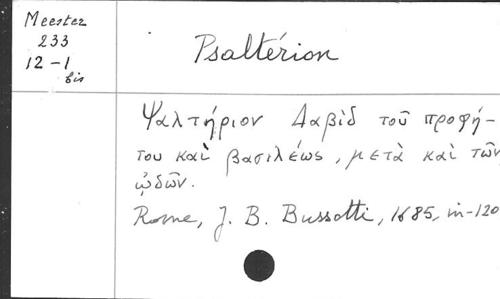 Meester
233
12-1
bis
Psaltérion
Ψαλτήριον Δαβὶδ τοῦ προφή-
του καὶ βασιλέως, μετὰ καὶ τῶν
ᾠδῶν.
Rome, J. B. Bussotti, 1685, in-120